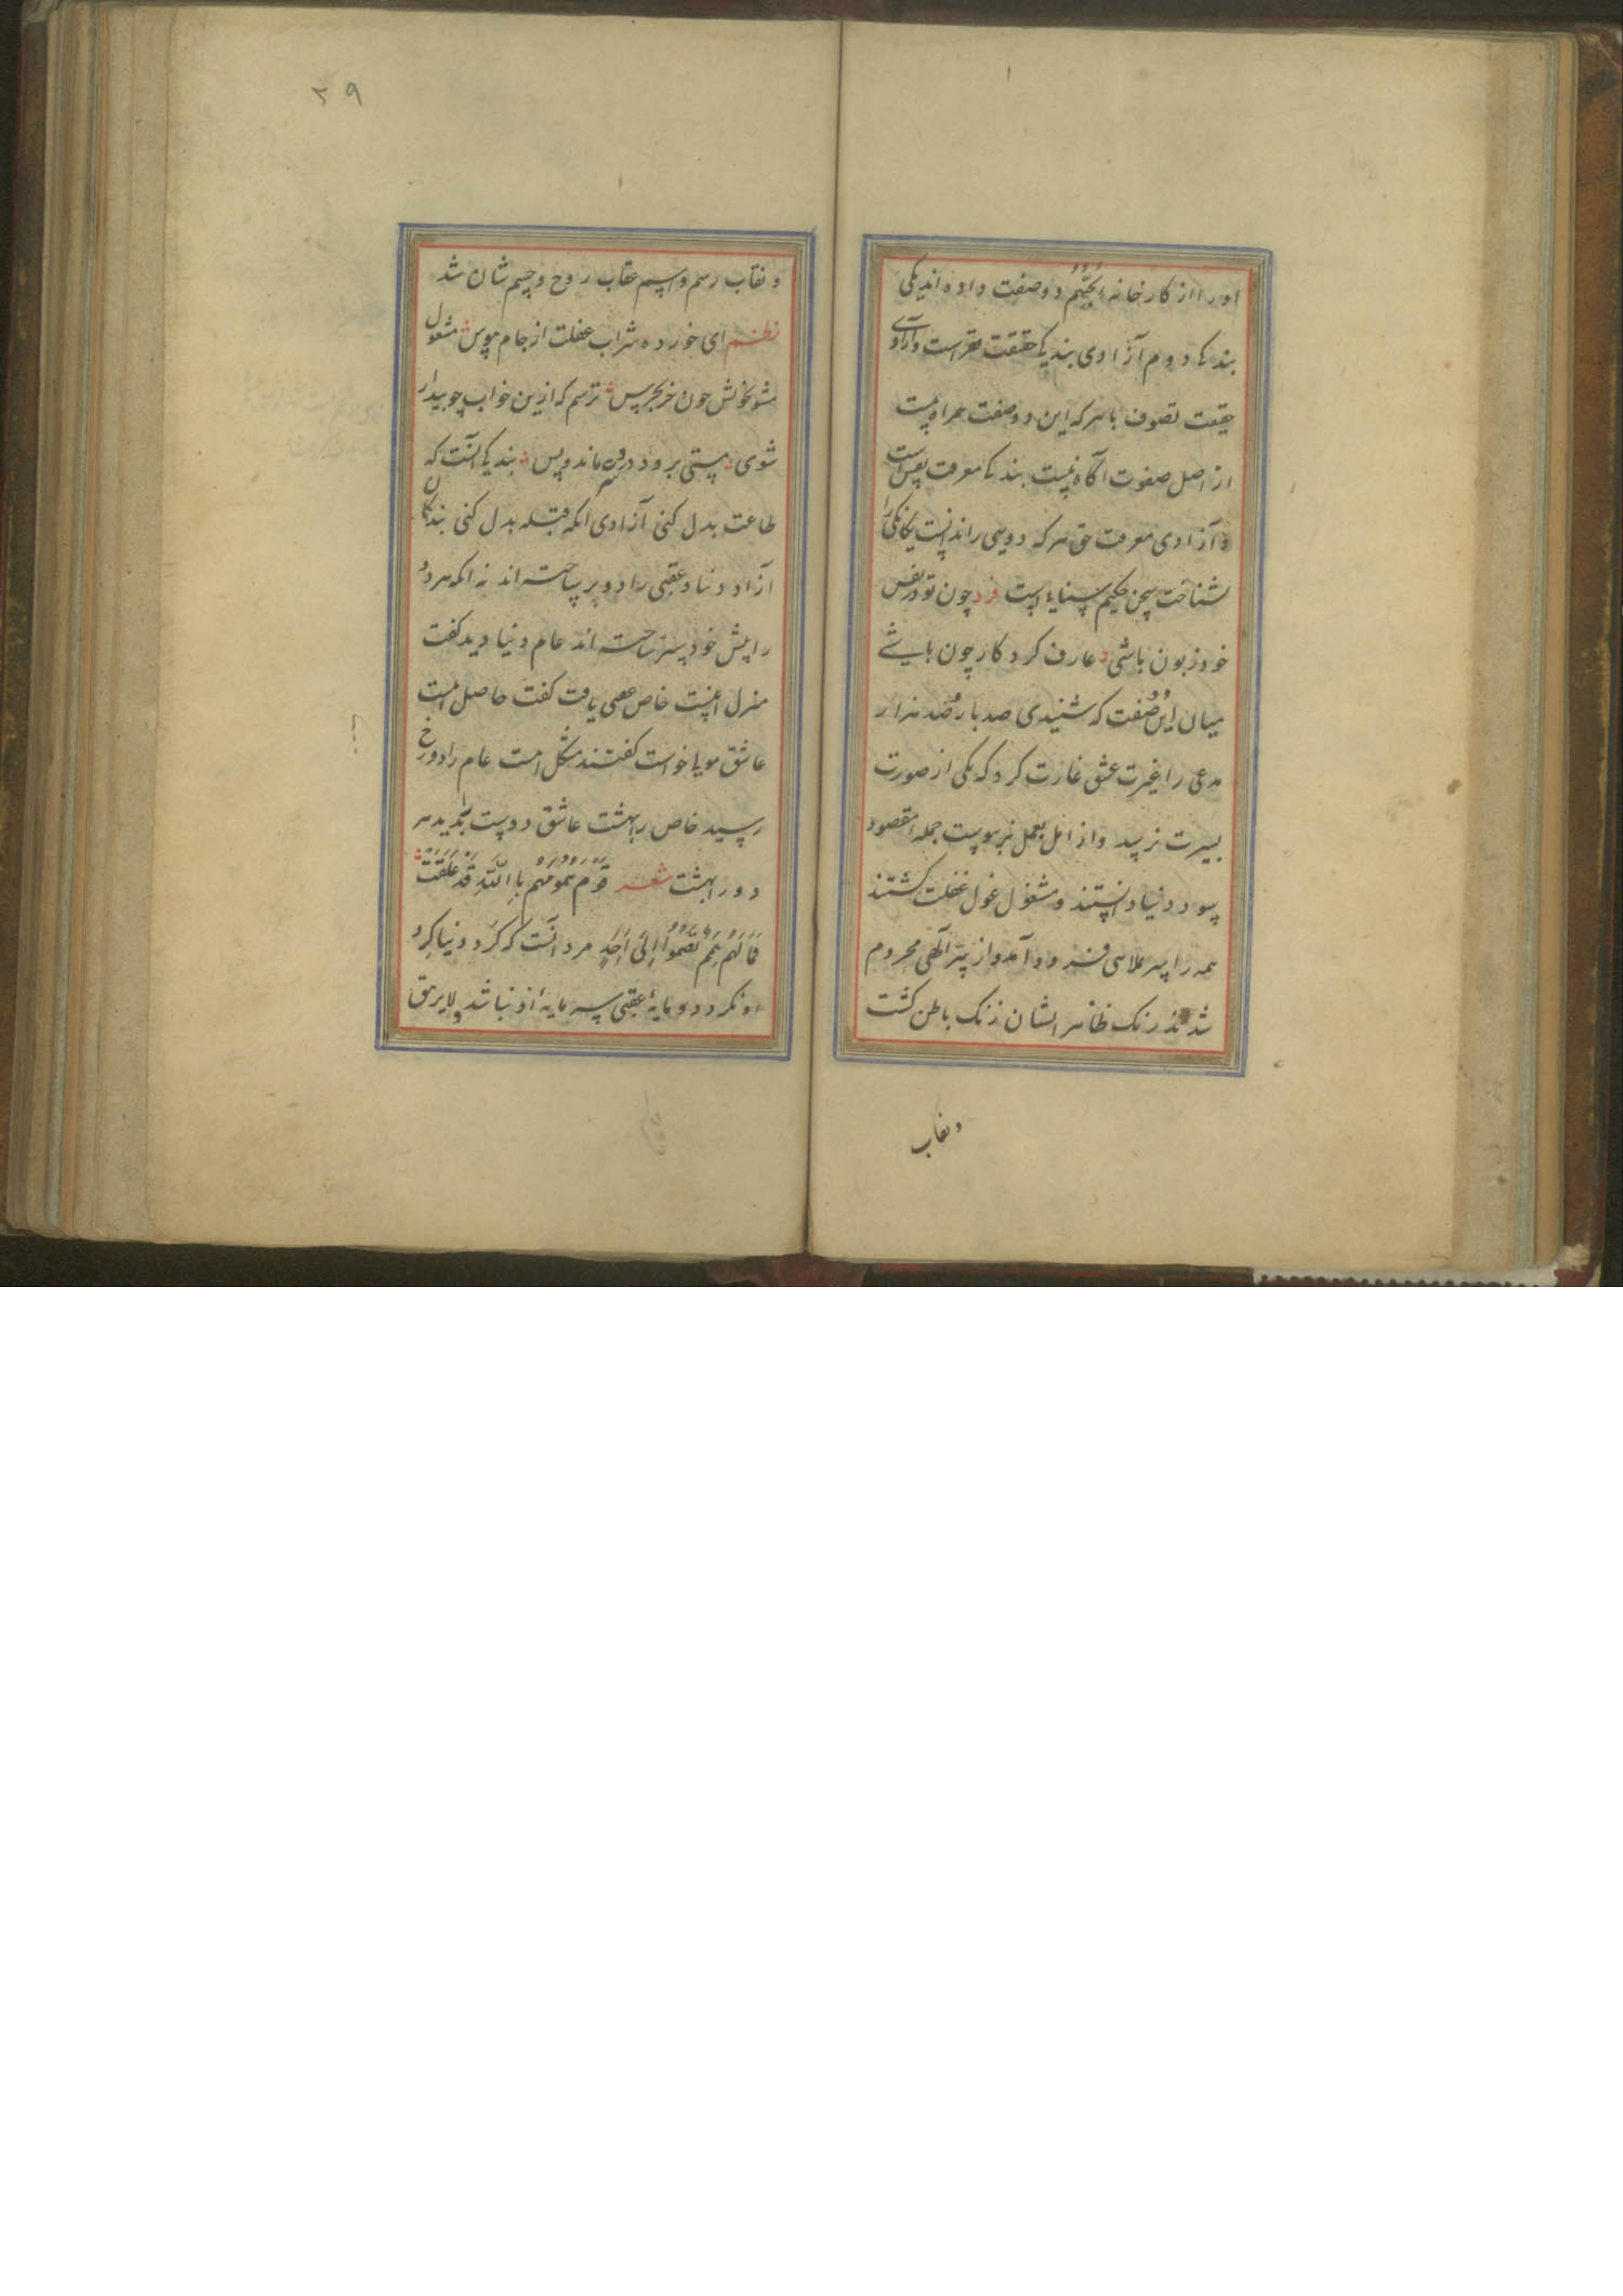 اورا از کارخانه یُحِبُّهُم دو صفت داده‌اند یکی
بندکی دوم آزادی بندیکی حقیقت فقر است و آزادی
حقیقت تصوف با هرکه این دو صفت همراه نیست
از اصل صفوت آکاه نیست بندکی معرفت نفس است
و آزادی معرفت حق هرکه دویی را ندانست یکانکی را
نشناخت سخن حکیم سنایی است فرد چون تو در نفس
خود زبون باشی عارف کردکار چون باشی
میان این دو صفت که شنیدی صد بار صد هزار
مدعی را غیرت عشق غارت کرد که یکی از صورت
بسیرت نرسید و از امل بعمل نپیوست جمله مقصود
سود دنیا دانستند و مشغول غول غفلت کشتند
همه را سر علاسی فرود آمد و از سرّ آلهی محروم
شدند رنک ظاهر ایشان زنک باطن کشت
ونقاب
۲۹
و نقاب رسم و اسم عقاب روح و جسم شان شد
نظم ای خورده شراب غفلت از جام هوس مشغول
مشو بخویش چون خر بجرس ترسم که ازین خواب چو بیدار
شوی مستی برود درد سرت ماند و بس بندیکی آنست که
طاعت بدل کنی آزادی آنکه قبله بدل کنی بندکان
آزاد دنیا و عقبی را دو پر ساخته‌اند نه آنکه هر دو
را پیش خود سر ساخته‌اند عام دنیا دید کفت
منزل اینست خاص عقبی یافت کفت حاصل اینست
عاشق مویا خواست کفتند مشکل است عام را دوزخ
رسید خاص را بهشت عاشق دوست بدید هر
دو را بهشت شعر قَومٌ هُمُومُهُم بِاللّهِ قَد عَلَقَت
فَمَا لَهُم هِمَمٌ تَصمُوا اِلَی اَحَدٍ مرد آنست که کرد دنیا کرد
او نکردد و مایهٔ عقبی سرمایهٔ او نباشد و لا یرهق